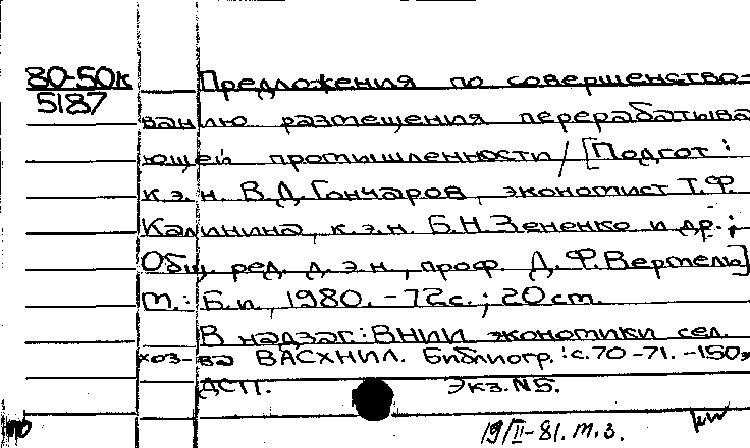 80-50к Предложения по совершенство-
5187
ванию размещения перерабатыва
ющей промышленности / [Подгот.:
к.э.н. В.Д. Гончаров, экономист Т.Ф.
Калинина, к.э.н. Б.Н. Зененко и др.;
Общ. ред. д.э.н., проф. Д.Ф. Вермель]
М.: Б.и, 1980. - 72с.; 20 см.
В надзаг.: ВНИИ экономики сел.
хоз-ва ВАСХНИЛ. Библиогр.: с.70-71. - 150э
ДСП. Экз. N5.
19/II-81. м.з.